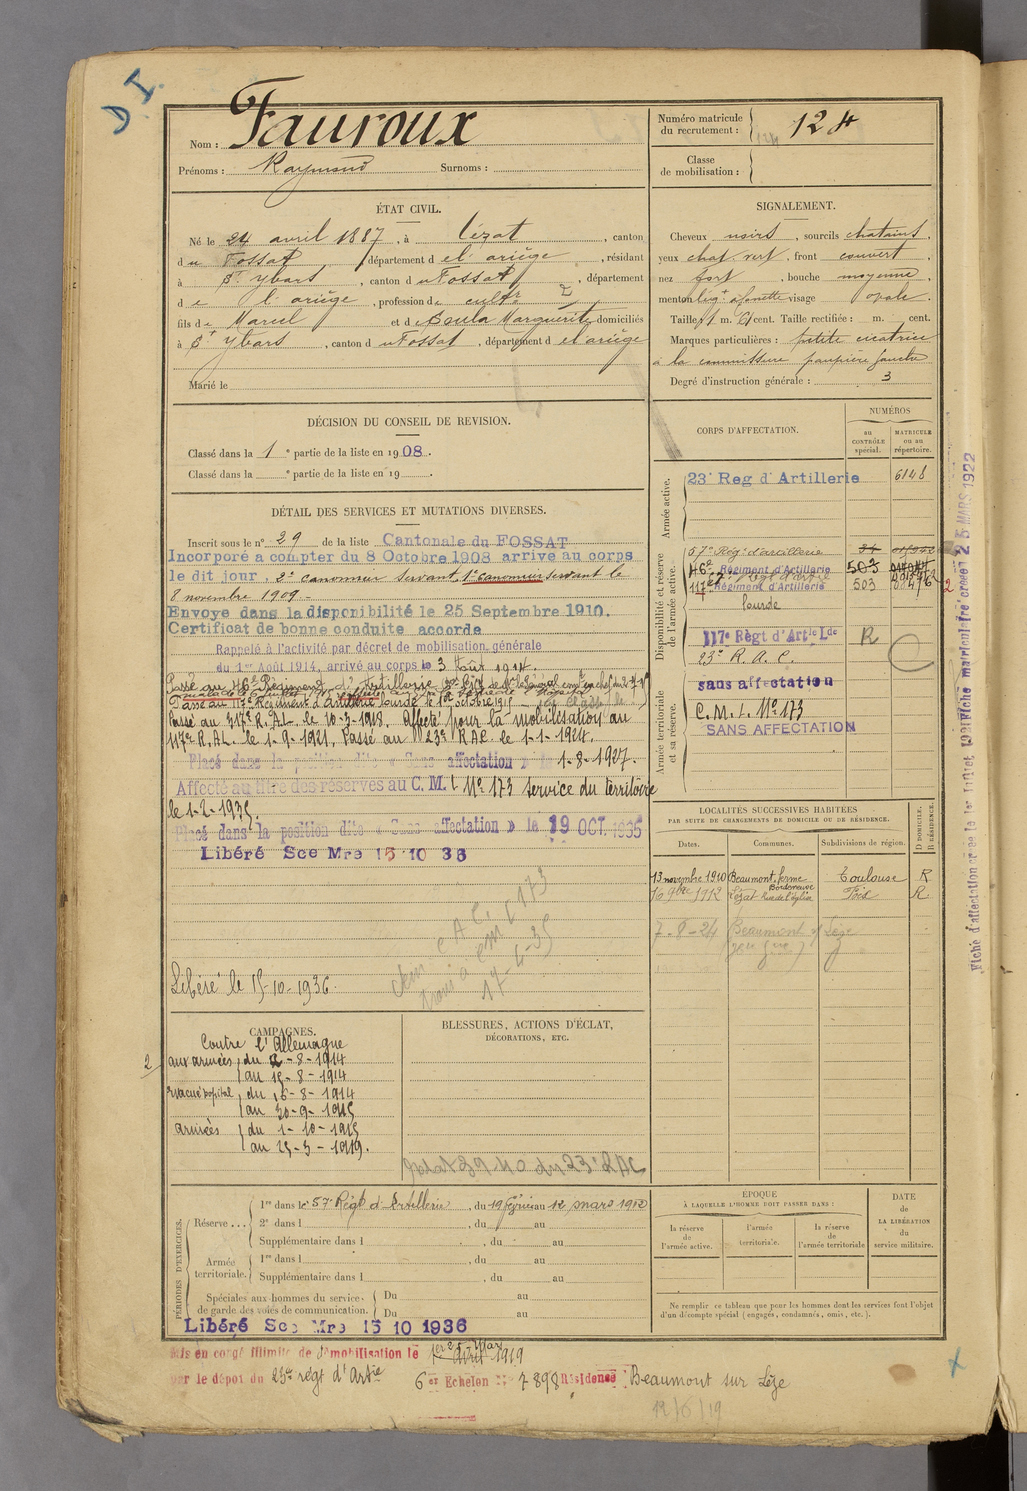 D I.
Nom : Fauroux
Prénoms : Raymond Surnoms :
Numéro matricule
du recrutement : 124
124
Classe
de mobilisation :
ÉTAT CIVIL.
Né le 24 avril 1887, à Lézat, canton
du Fossat, département de l'ariège, résidant
à St Ybars, canton du Fossat, département
de l'ariège, profession de cultr
fils de Marcel et de Soula Marguerite domiciliés
à St Ybars, canton du Fossat, département de l'ariège
Marié le
SIGNALEMENT.
Cheveux noirs, sourcils chatains,
yeux chat. vert, front couvert,
nez fort, bouche moyenne,
menton visage ovale.
Taille 1 m. 61 cent. Taille rectifiée : m. cent.
Marques particulières : petite cicatrice
à la commissure paupière gauche
Degré d'instruction générale : 3
DÉCISION DU CONSEIL DE REVISION.
Classé dans la 1e partie de la liste en 1908.
Classé dans la e partie de la liste en 19 .
DÉTAIL DES SERVICES ET MUTATIONS DIVERSES.
Inscrit sous le n° 29 de la liste Cantonale du FOSSAT
Incorporé a compter du 8 Octobre 1908 arrive au corps
le dit jour : 2e canonnier servant, 1er canonnier servant le
8 novembre 1909 -
Envoye dans la disponibilité le 25 Septembre 1910.
Certificat de bonne conduite accorde
Rappelé à l'activité par décret de mobilisation générale
du 1er Août 1914, arrivé au corps le 3 août 1914.
Passé au 46e Régiment d'Artillerie
Passé au 117e Régiment d'Artillerie lourde le 1er octobre 1915
Passé au 317e R.A.L. le 10-3-1918. Affecté pour la mobilisation au
117e R.A.L. le 1-9-1921. Passé au 23e RAC. le 1-1-1924.
Placé dans la position dite « Sans affectation » le 1-8-1927.
Affecté au titre des réserves au C. M. L No 173 service du territoire
le 1-2-1935.
Placé dans la position dite « Sans affectation » le 19 OCT. 1935
Libéré Sce Mre 15 10 36
CML 173
17-4-35
Libéré le 15-10-1936.
CORPS D'AFFECTATION.
NUMÉROS
au
CONTRÔLE
spécial.
MATRICULE
ou au
répertoire.
Armée active.
23e Reg d'Artillerie 6148
Disponibilité et réserve
de l'armée active.
57e Rég. d'artillerie
46e Régiment d'Artillerie 503
117e Régiment d'Artillerie 503
lourde
117e Règt d'Artie Lde R
23e R. A. C.
Armée territoriale
et sa réserve.
sans affectation
C. M. L. No 173
SANS AFFECTATION
LOCALITÉS SUCCESSIVES HABITÉES
PAR SUITE DE CHANGEMENTS DE DOMICILE OU DE RÉSIDENCE.
Dates. Communes. Subdivisions de région.
D DOMICILE.
R RÉSIDENCE.
13 novembre 1910 Beaumont, ferme Bordeneuve Toulouse R
16 9bre 1912 Lézat rue de l'église Foix R
7-8-24 Beaumont s/ Lèze
CAMPAGNES.
Contre l'Allemagne
2
aux armées, du 2-8-1914
au 15-8-1914
évacué hopital, du 16-8-1914
au 30-9-1915
armées du 1-10-1915
au 25-3-1919.
BLESSURES, ACTIONS D'ÉCLAT,
DÉCORATIONS, ETC.
du 23e RAC
PÉRIODES D'EXERCICES.
Réserve...
1re dans le 57e Régt d'Artillerie, du 19 février au 12 mars 1912
2e dans l , du au
Supplémentaire dans l , du au
Armée
territoriale.
1re dans l , du au
Supplémentaire dans l , du au
Spéciales aux hommes du service
de garde des voies de communication.
Du au
Du au
Libéré Sce Mre 15 10 1936
ÉPOQUE
À LAQUELLE L'HOMME DOIT PASSER DANS :
la réserve
de
l'armée active.
l'armée
territoriale.
la réserve
de
l'armée territoriale
DATE
de
LA LIBÉRATION
du
service militaire.
Ne remplir ce tableau que pour les hommes dont les services font l'objet
d'un décompte spécial (engagés, condamnés, omis, etc.).
Mis en congé illimité de démobilisation le 25 Mars 1919
par le dépot du 23e régt d'Artie 6e Echelon No 7898 Résidence Beaumont sur Lèze
12/6/19
Fiche matriculaire créée le 25 MARS 1922